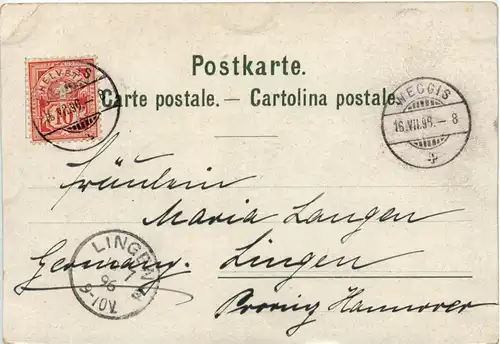 HELVETIA
10
Postkarte.
Carte postale. — Cartolina postale.
WEGGIS
16.VII.98.-8
Fräulein
Maria Langen
Lingen
Germany.
Provinz Hannover
LINGEN